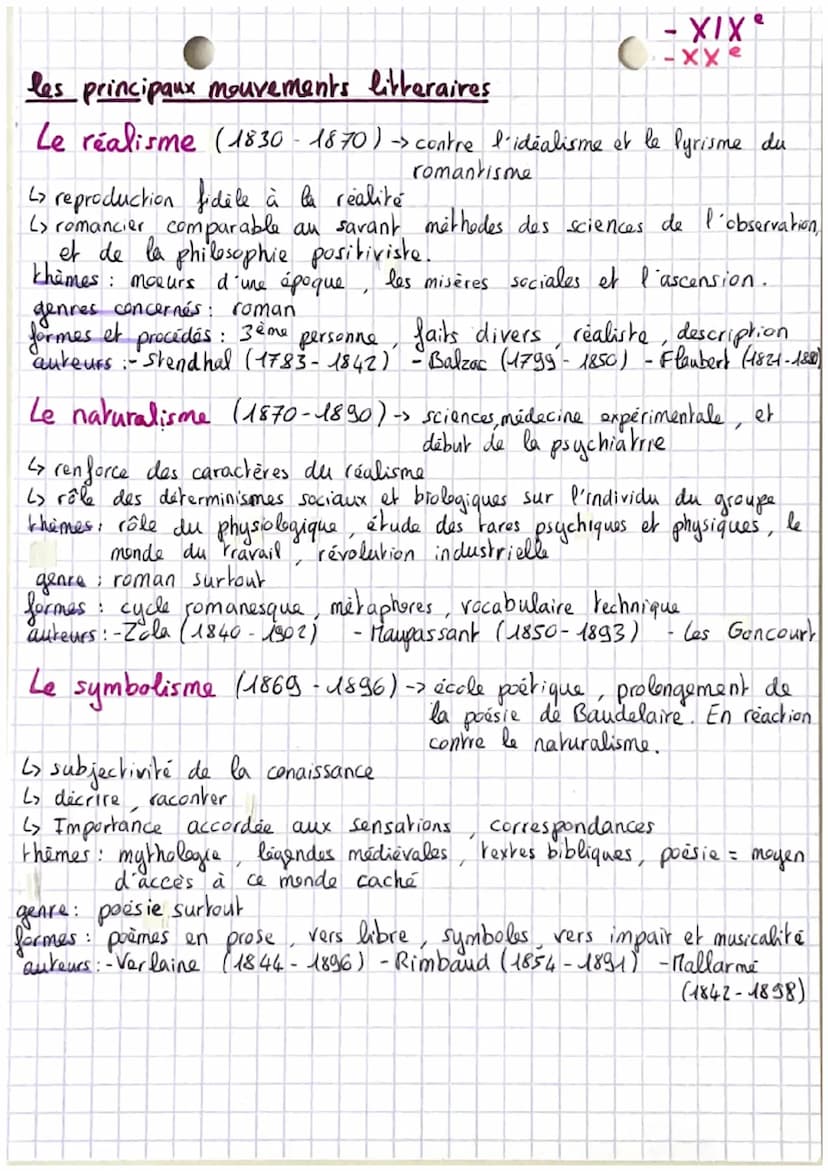 - XIXe
- XXe
les principaux mouvements litteraires
Le réalisme (1830 - 1870) -> contre l'idéalisme et le lyrisme du
romantisme
↳ reproduction fidèle à la réalité
↳ romancier comparable au savant méthodes des sciences de l'observation,
et de la philosophie positiviste.
thèmes : mœurs d'une époque, les misères sociales et l'ascension.
genres concernés : roman
formes et procédés : 3ème personne, faits divers, réaliste, description
auteurs :- Stendhal (1783 - 1842) - Balzac (1799 - 1850) - Flaubert (1821-1880)
Le naturalisme (1870-1890) -> sciences, médecine expérimentale, et
début de la psychiatrie
↳ renforce des caractères du réalisme
↳ rôle des déterminismes sociaux et biologiques sur l'individu du groupe
thèmes : rôle du physiologique, étude des tares psychiques et physiques, le
monde du travail, révolution industrielle
genre : roman surtout
formes : cycle romanesque, métaphores, vocabulaire technique
auteurs :-Zola (1840 - 1902) - Maupassant (1850-1893) - Les Goncourt
Le symbolisme (1869 - 1896) -> école poétique, prolongement de
la poésie de Baudelaire. En réaction
contre le naturalisme.
↳ subjectivité de la conaissance
↳ décrire, raconter
↳ Importance accordée aux sensations, correspondances
thèmes : mythologie, légendes médiévales, textes bibliques, poésie = moyen
d'accès à ce monde caché
genre : poésie surtout
formes : poèmes en prose, vers libre, symboles, vers impair et musicalité
auteurs :-Verlaine (1844 - 1896) -Rimbaud (1854-1891) -Mallarmé
(1842-1898)